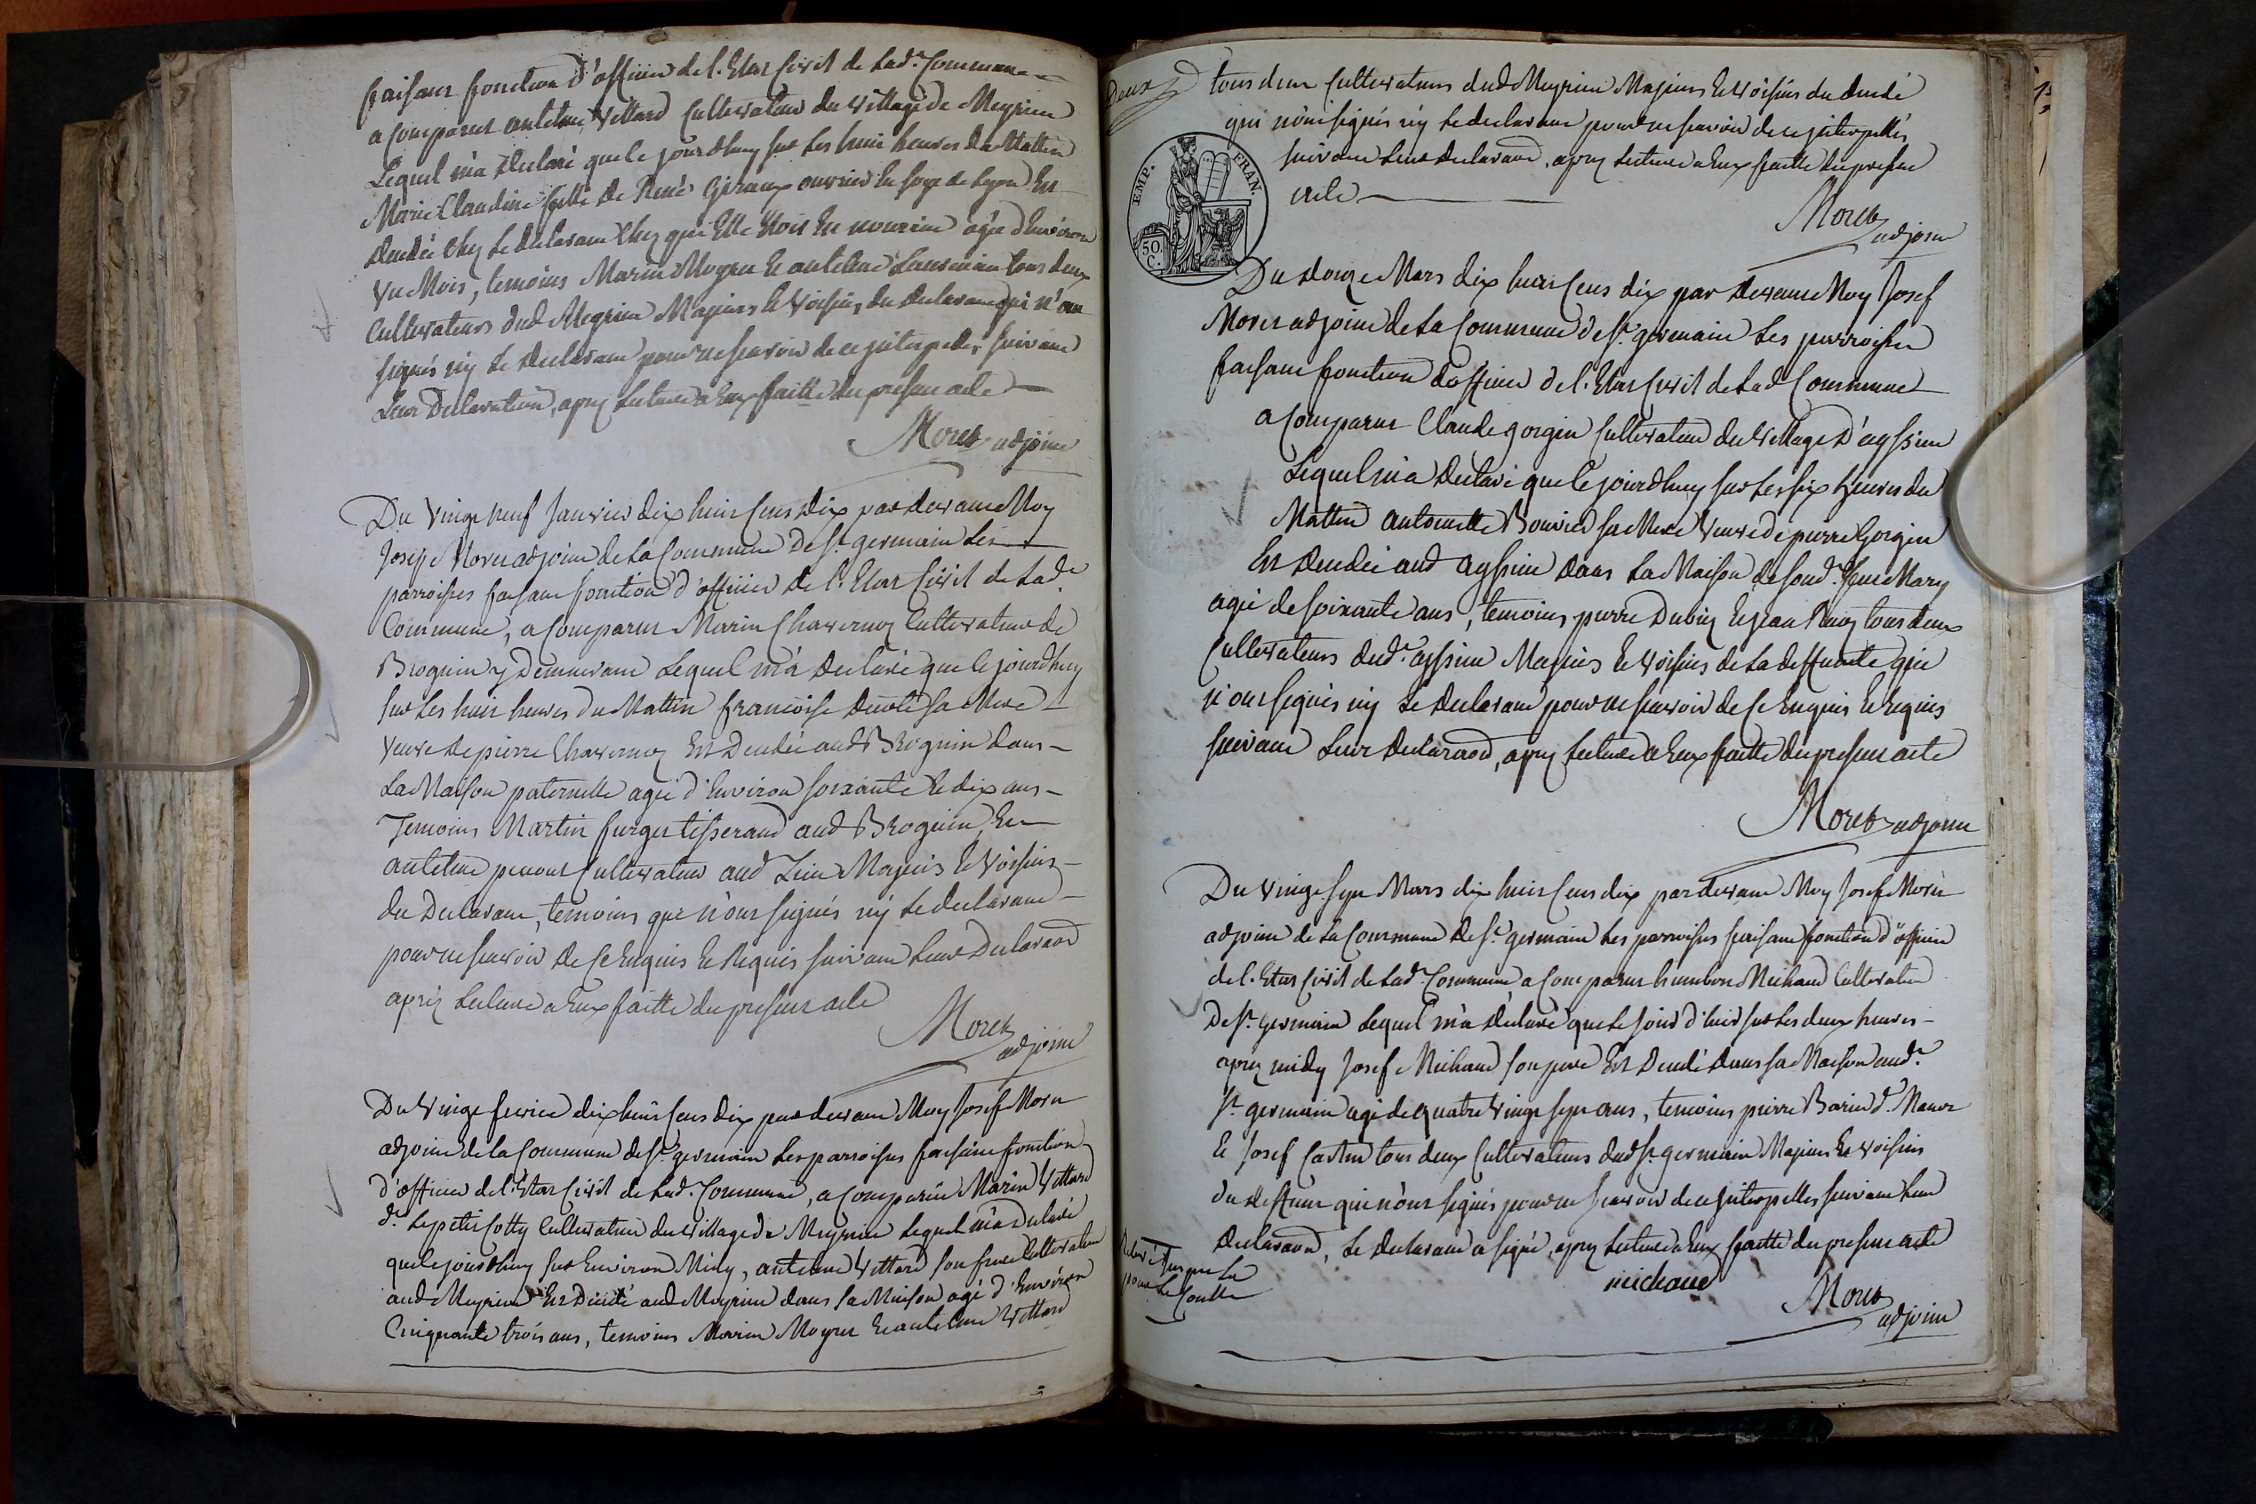 faisant fonction d'officier de l'Etat Civil de lad.e Commune
a Comparut antelme Vittard Cultivateur du village de Meyrieu
Lequel m'a Declaré que le jourdhuy sur les huit heures du Mattin
Marie Claudine fille de René Giraux ouvrier En soye de Lyon Est
decedée chez le declarant chez qui Elle Etoit En nourrice agée d'Environ
Un Mois, temoins Marin Moyret Et antelme tous deux
Cultivateurs dud Meyrieu Majeurs Et Voisins du declarant qui n'ont
signés ny le declarant pour ne scavoir de ce interpellés suivant
Leur Declaration, apres Lecture a Eux faitte du present acte
Moret adjoint
Du Vingt neuf Janvier dix huit Cens dix par devant Moy
Josept Moret adjoint de la Commune de St. germain Les
parroisses faisant fonction d'officier de l'Etat Civil de lad.e
Commune, a Comparut Marin Chavernoz Cultivateur de
Brognin y Demeurant Lequel m'a declaré que le jourdhuy
sur Les huit heures du Mattin francoise sa Mere
Veuve de pierre Chavernoz Est Decedée aud Brognin dans
La Maison paternelle agée d'Environ soixante Et dix ans
Temoins Martin furget tisserand aud Brognin Et
antelme Cultivateur aud Lieu Majeurs Et Voisins
du Declarant, temoins qui n'ont signés ny Le declarant
pour ne scavoir de Ce Enquis Et Requis suivant Leur Declaraon
après Lecture a Eux faitte du present acte
Moret
adjoint
Du Vingt fevrier dix huit Cens dix par devant Moy Josef Moret
adjoint de la Commune de St. germain Les parroisses faisant fonction
d'officier de l'Etat Civil de Lad.e Commune, a Comparut Marin Vittard
d.t Le petit Cotty Cultivateur du village de Meyrieu Lequel m'a Declaré
que le jourdhuy sur Environ Midy, antelme Vittard son frere Cultivateur
aud Meyrieu Est Décedé aud Meyrieu dans sa Maison agé d'Environ
Cinquante trois ans, temoins Marin Moyret Et antelme Vittard
Deux
tous deux Cultivateurs dud Meyrieu Majeurs Et Voisins du decedé
qui n'ont signés ny Le declarant pour ne scavoir de ce interpellés
suivant Leur declaraon, apres Lecture a Eux faitte du present
acte
EMP. FRAN.
50.
C.
Moret
adjoint
Du douze Mars dix huit Cens dix par devant Moy Josef
Moret adjoint de La Commune de St. germain Les parroisses
faisant fonction d'officier de l'Etat Civil de Lad Commune
a Comparut Claude gorgin Cultivateur du Village d'ayssieu
Lequel m'a Declaré que le jourdhuy sur Les six heures du
Mattin antoinette Bouvier sa Mere Veuve de pierre Gorgin
Est Decedée aud ayssieu dans La Maison de sond.t feu Mary
agée de soixante ans, temoins pierre Et Jean tous deux
Cultivateurs dud.t ayssieu Majeurs Et voisins de La deffunte qui
n'ont signés ny Le Declarant pour ne scavoir de Ce Enquis Et Requis
suivant Leur declaraon, apres Lecture a Eux faitte du present acte
Moret adjoint
Du Vingt sept Mars dix huit Cens dix par devant Moy Josef Moret
adjoint de La Commune de St. germain Les parroisses faisant fonction d'officier
de l'Etat Civil de Lad.e Commune a Comparut humbert Michaud Cultivateur
De St. germain Lequel m'a declaré que Le jour d'huit sur Les deux heures
apres midy Josef Michaud son pere Est Decedé dans sa Maison aud.t
St. germain agé de quatre Vingt sept ans, temoins pierre Barin d.t
Et Josef tous deux Cultivateurs dud St. germain Majeurs Et voisins
du deffunt qui n'ont signés pour ne scavoir de ce interpellés suivant Leur
declaraon, Le declarant a signé, apres Lecture a Eux faitte du present acte
michaud
Moret
adjoint